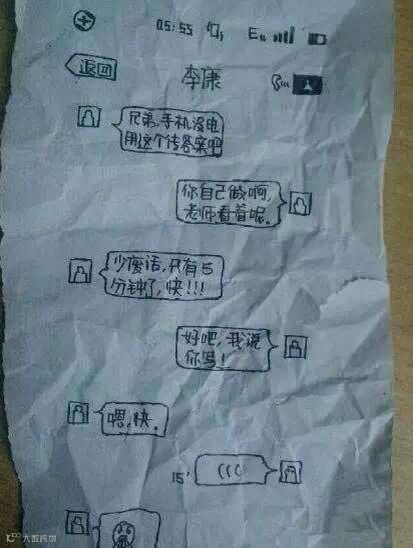 05:55
E
返回
李康
兄弟,手机没电
用这个传答案吧
你自己做啊,
老师看着呢.
少废话,只有5
分钟了,快!!!
好吧,我说
你写!
嗯,快.
15"
(((
大数跨境